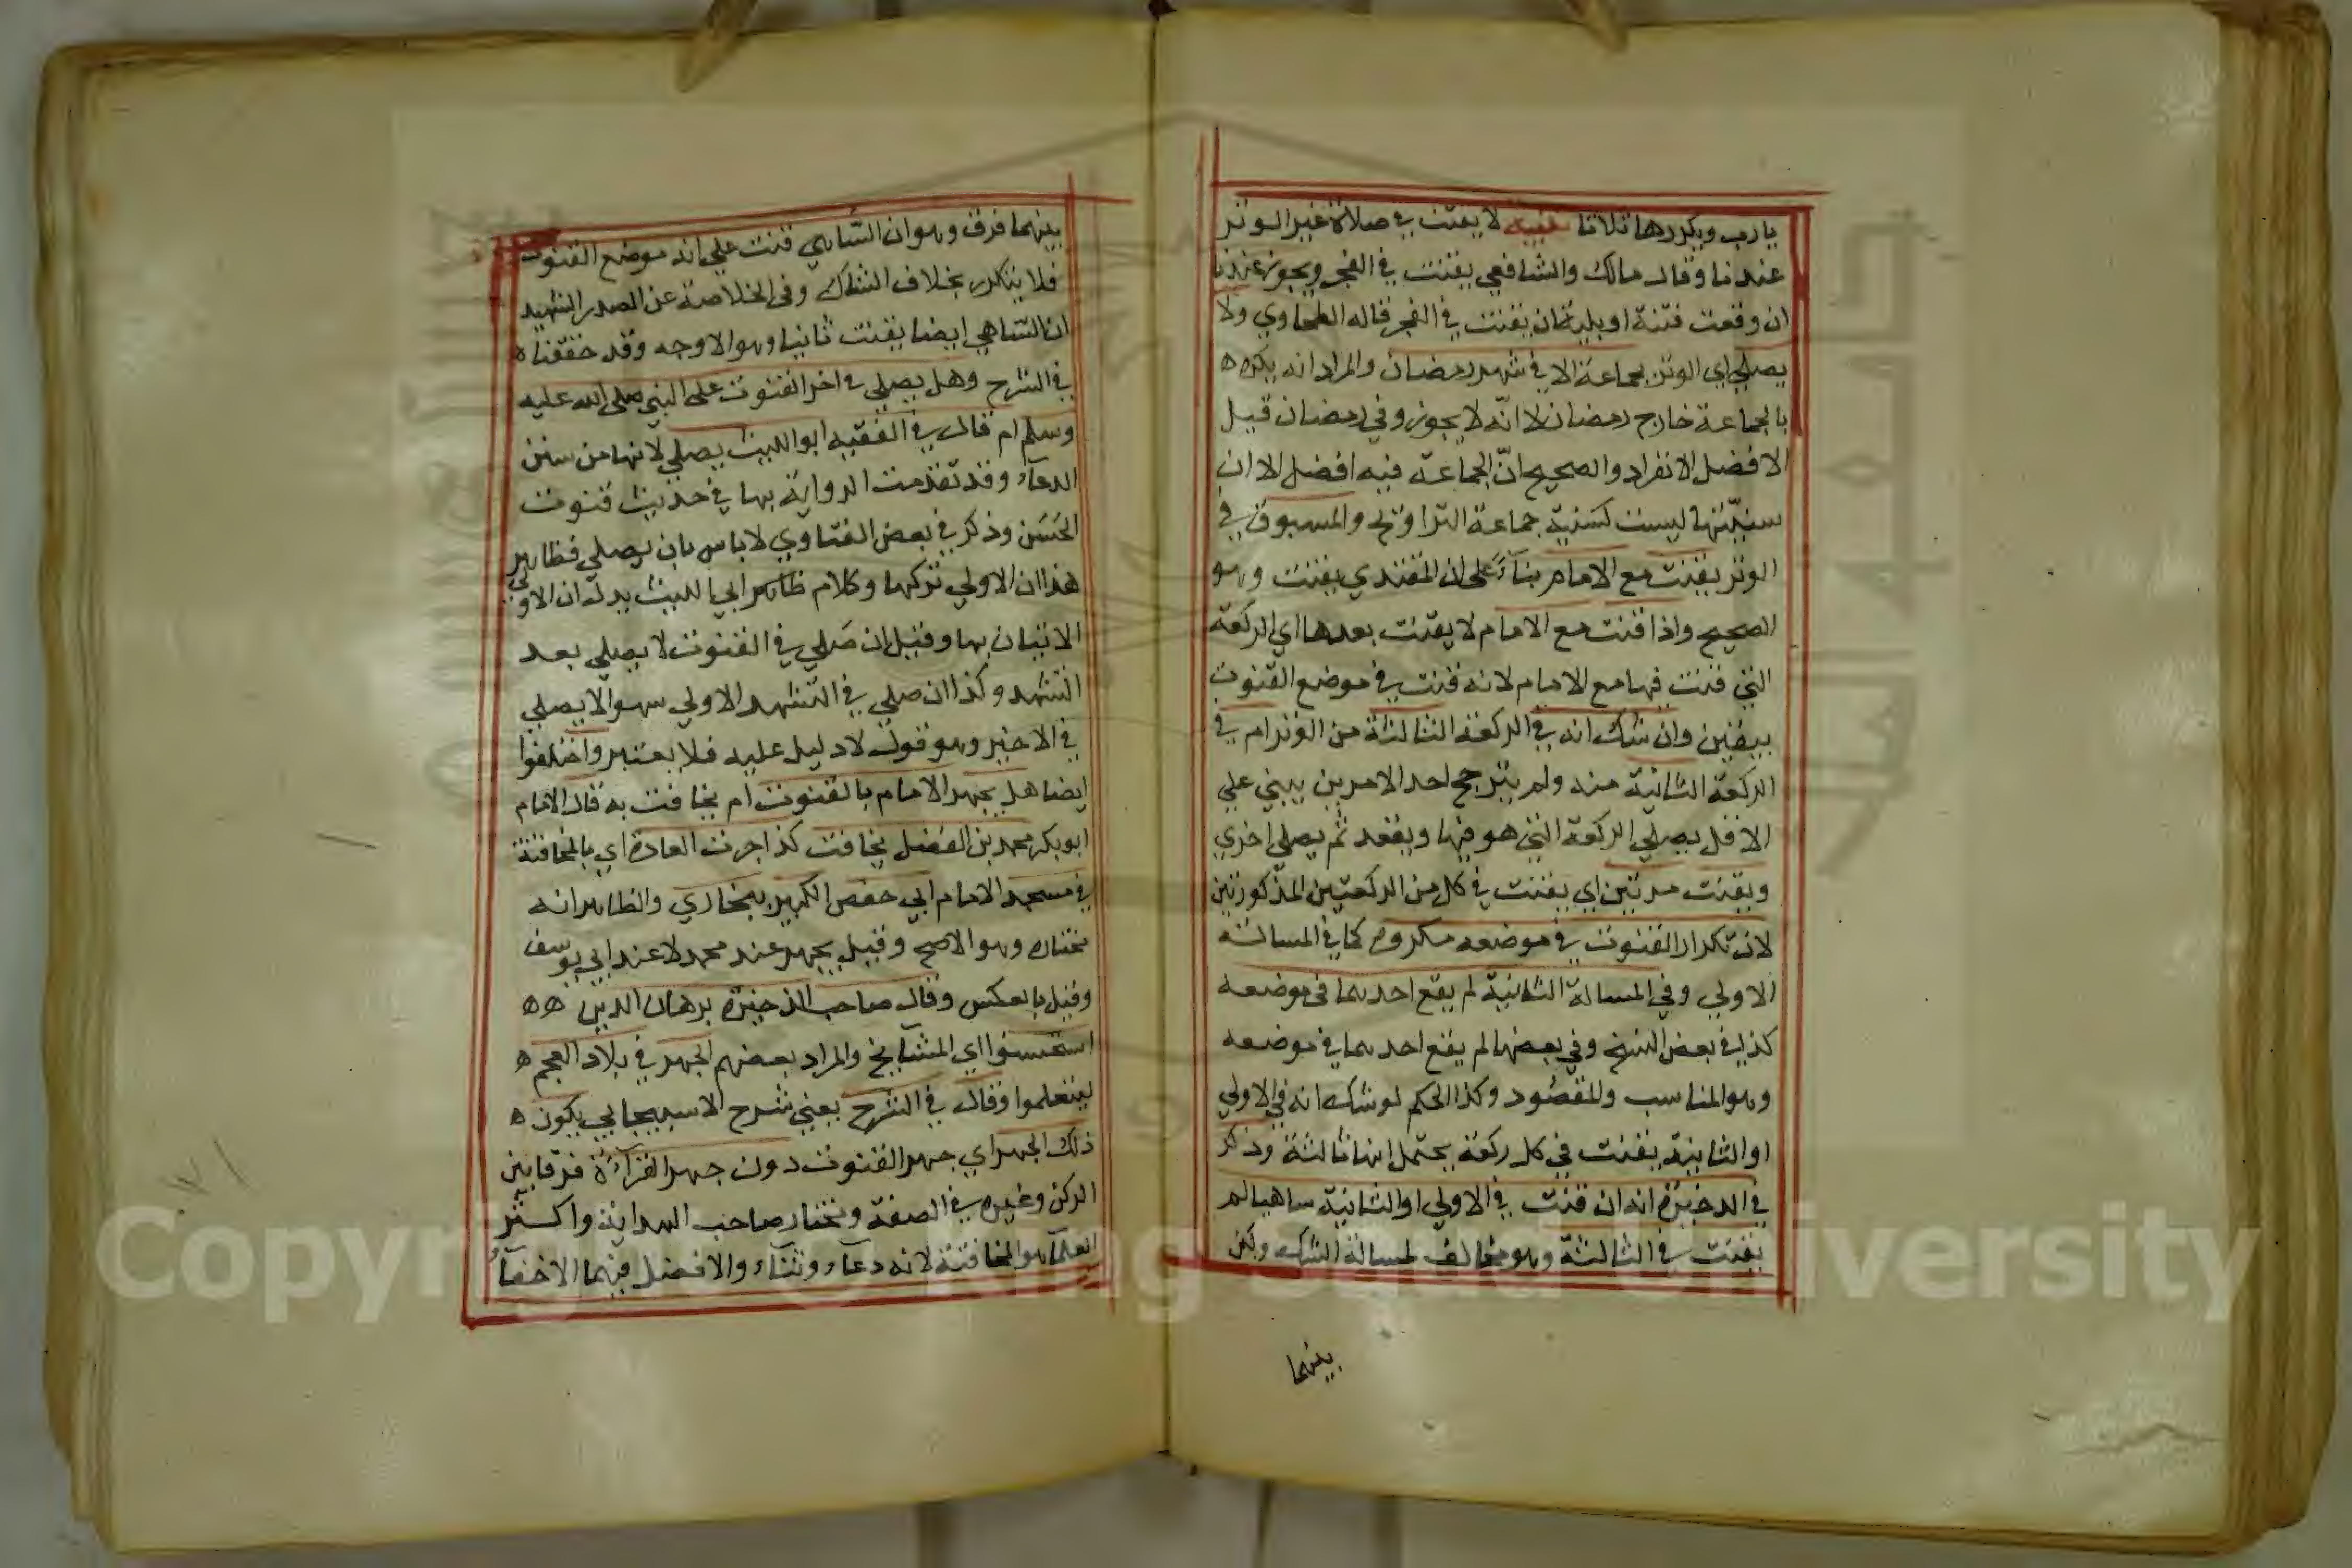 يارب ويكررها ثلاثا تنبيه لا يقنت في صلاة غير الوتر
عندنا وقال مالك والشافعي يقنت في الفجر ويجوز عندنا
ان وقعت فتنة او بلية ان يقنت في الفجر قاله الطحاوي ولا
يصلي اي الوتر بجماعة الا في شهر رمضان والمراد انه يكره
بالجماعة خارج رمضان لا انّه لا يجوز وفي رمضان قيل
الافضل الانفراد والصحيح انّ الجماعة فيه افضل الا ان
سنيّتها ليست كسنية جماعة التراويح والمسبوق في
الوتر يقنت مع الامام بناءً على ان المقتدي يقنت وهو
الصحيح واذا قنت مع الامام لا يقنت بعدها اي الركعة
التي قنت فيها مع الامام لانه قنت في موضع القنوت
بيقين وان شك انه في الركعة الثالثة من الوتر ام في
الركعة الثانية منه ولم يترجح احد الامرين يبني علي
الاقل يصلي الركعة التي هو فيها ويقعد ثم يصلي اخري
ويقنت مرتين اي يقنت في كل من الركعتين المذكورتين
لان تكرار القنوت في موضعه مكروه كما في المسالة
الاولي وفي المسالة الثانية لم يقع احدهما في موضعه
كذا في بعض النسخ وفي بعضها لم يقع احدهما في موضعه
وهو المناسب والمقصود وكذا الحكم لو شك انه في الاولي
او الثانية يقنت في كل ركعة يحتمل انها ثالثة وذكر
في الذخيرة انه ان قنت في الاولي او الثانية ساهيا لم
يقنت في الثالثة وهو مخالف لمسالة الشك ولكن
بينهما
بينهما فرق وهو ان السّاهي قنت علي انه موضع القنوت
فلا يتكرر بخلاف الشاك وفي الخلاصة عن الصدر الشهيد
ان السّاهي ايضا يقنت ثانيا وهو الاوجه وقد حققناه
في الشرح وهل يصلي في اخر القنوت على النبي صلى الله عليه
وسلم ام قال في الفقيه ابو الليث يصلي لانها من سنن
الدعاء وقد تقدمت الرواية بها في حديث قنوت
الحَسَن وذكر في بعض الفتاوي لا باس بان يصلي فظاهر
هذا ان الاولي تركها وكلام ظاهر ابي الليث يدل ان الاولي
الاتيان بها وقيل ان صَلي في القنوت لا يصلي بعد
التشهد وكذا ان صلي في التشهد الاولي سهوا لا يصلي
في الاخير وهو قول لا دليل عليه فلا يعتبر واختلفوا
ايضا هل يجهر الامام بالقنوت ام يخافت به قال الامام
ابو بكر محمد بن الفضل يخافت كذا جرت العادة اي بالمخافتة
في مسجد الامام ابي حفص الكبير ببخاري والظاهر انه
مختاره وهو الاصح وقيل يجهر عند محمد لا عند ابي يوسف
وقيل بالعكس وقال صاحب الذخيرة برهان الدين ه ه
استحسنوا اي المشايخ والمراد بعضهم الجهر في بلاد العجم ه
ليتعلموا وقال في الشرح يعني شرح الاسبيجابي يكون ه
ذلك الجهر اي جهر القنوت دون جهر القراءة فرقا بين
الركن وغيره في الصفة ومختار صاحب الهداية واكثر
العلماء هو المخافتة لانه دعاء وثناء والافضل فيهما الاخفاء
Copyright © King Saud University